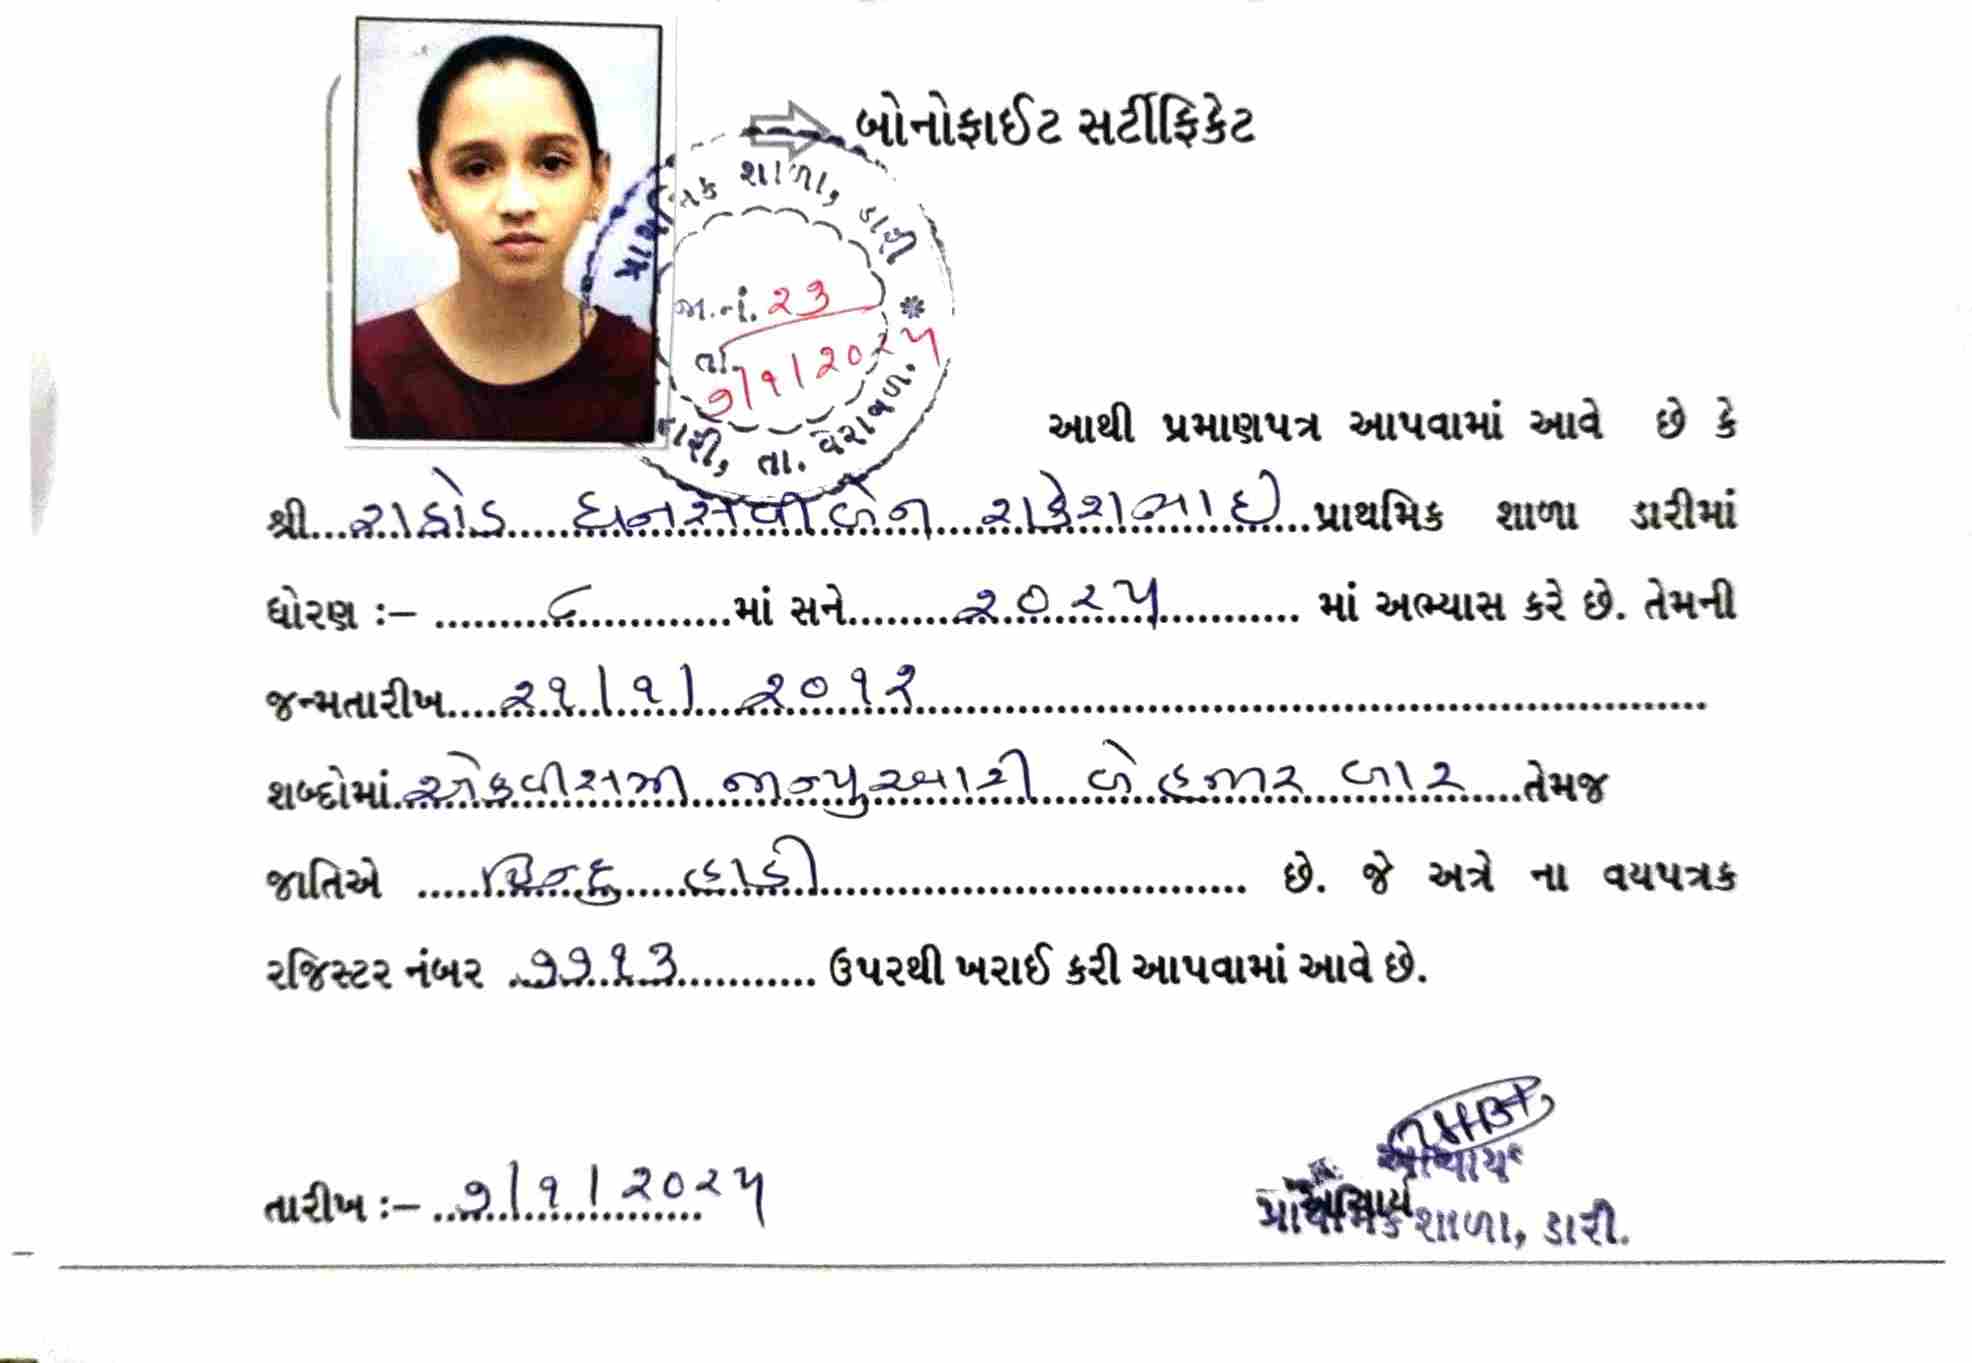 બોનોફાઈટ સર્ટીફિકેટ
પ્રાથમિક શાળા, ડારી
જા.નં. ૨૩
તા. ૭/૧/૨૦૨૫
ડારી, તા. વેરાવળ.
આથી પ્રમાણપત્ર આપવામાં આવે છે કે
શ્રી...રાઠોડ ધનસવીબેન રાકેશભાઈ...પ્રાથમિક શાળા ડારીમાં
ધોરણ :– ...૮...માં સને...૨૦૨૫... માં અભ્યાસ કરે છે. તેમની
જન્મતારીખ...૨૧/૧/૨૦૧૨...
શબ્દોમાં...એકવીસમી જાન્યુઆરી બે હજાર બાર...તેમજ
જાતિએ ...હિન્દુ હાડી... છે. જે અત્રે ના વયપત્રક
રજિસ્ટર નંબર ...૭૭૧૩... ઉપરથી ખરાઈ કરી આપવામાં આવે છે.
તારીખ :– ...૭/૧/૨૦૨૫
આચાર્ય
આચાર્ય
પ્રાથમિક શાળા, ડારી.